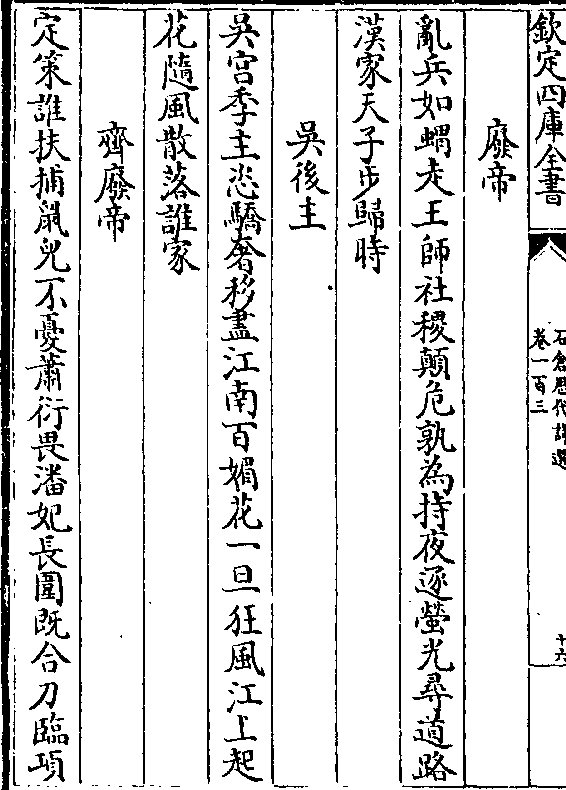 欽定四庫全書
石倉歷代詩選
卷一百三
十六
廢帝
亂兵如蝟走王師社稷顛危孰為持夜逐螢光尋道路
漢家天子步歸時
吳後主
吳宮季主恣驕奢移盡江南百媚花一旦狂風江上起
花隨風散落誰家
齊廢帝
定策誰扶捕鼠兒不憂蕭衍畏潘妃長圍既合刀臨項